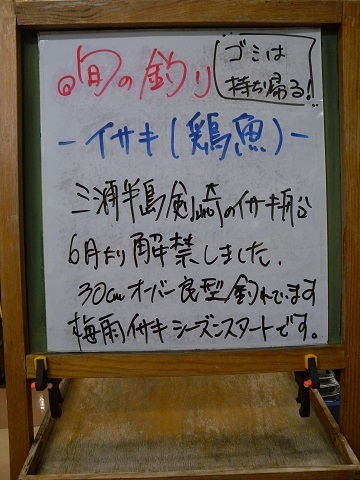 ◎旬の釣り
ゴミは
持ち帰る!
-イサキ(鶏魚)-
三浦半島剣崎のイサキ
6月より解禁しました.
30cmオーバー良型釣れています
梅雨イサキシーズンスタートです。